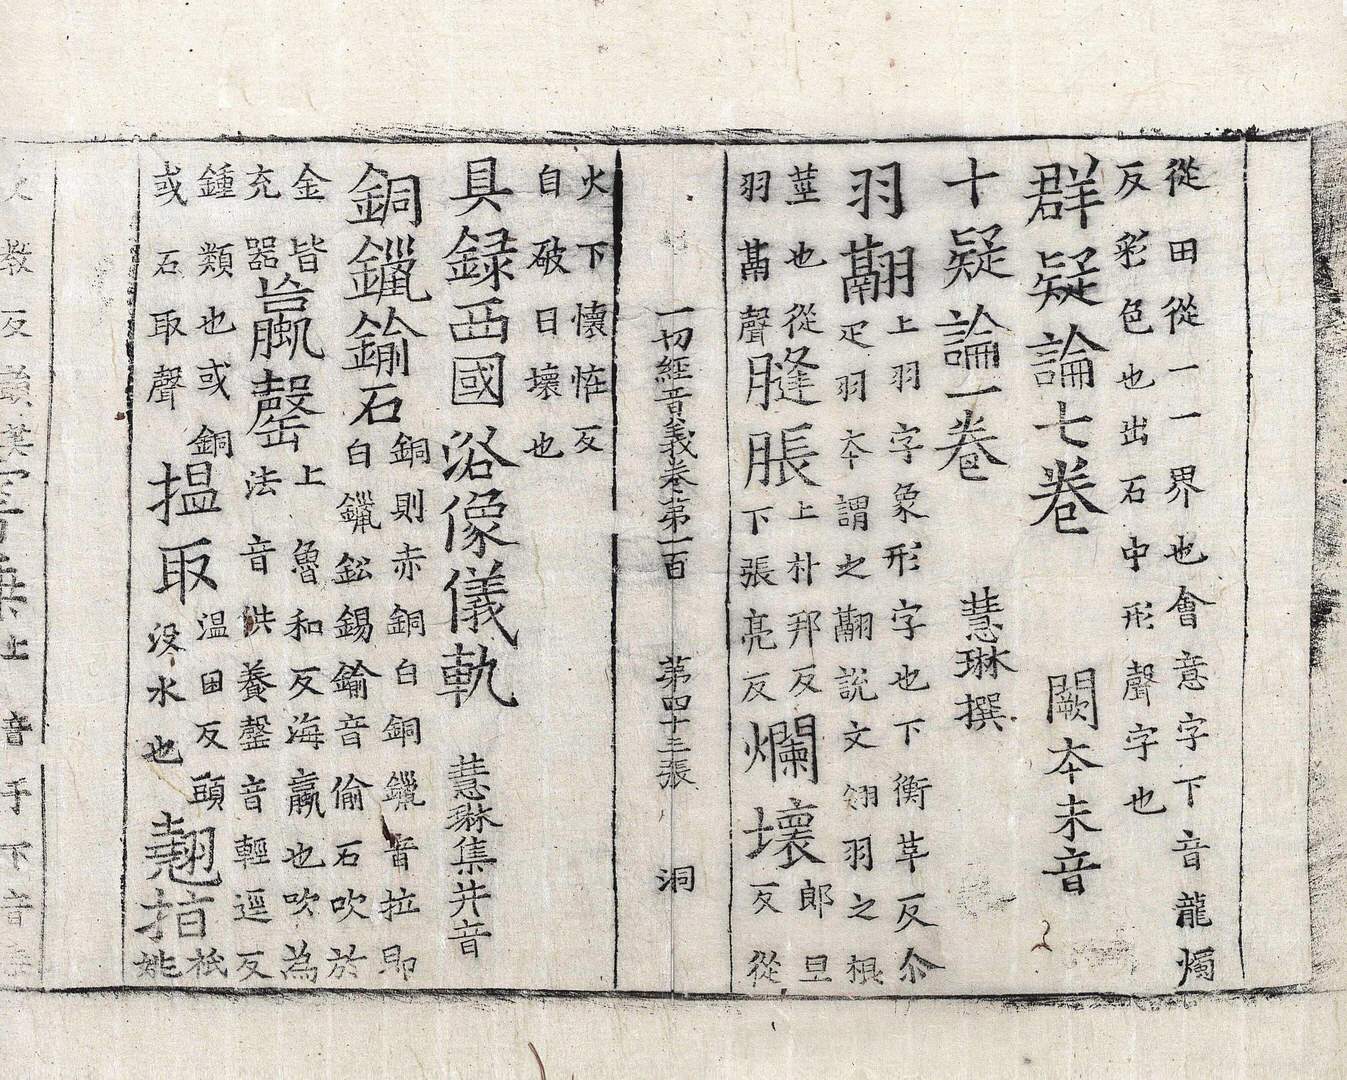 從田從一一界也會意字下音龍燭
反彩色也出石中形聲字也
群疑論七卷 闕本未音
十疑論一卷 慧琳撰
羽翮上羽字象形字也下衡革反尒
疋羽本謂之翮說文翎羽之根
莖也從羽鬲聲
膖脹上朴邦反下張亮反
爛壞郎旦反從
一切經音義卷第一百 第四十三張 洞
火下懷恠反
自破曰壞也
具録西國浴像儀軌 慧琳集并音
銅鑞鍮石銅則赤銅白銅鑞音拉即
白鑞鈆錫鍮音偷石吹於
金皆上魯和反海蠃也吹為
充器法音供養罄音輕逕反
鍾類也或銅
或石取聲
揾取温困反頭
沒水也
翹指祇
姚